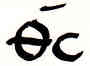 Θ̅C